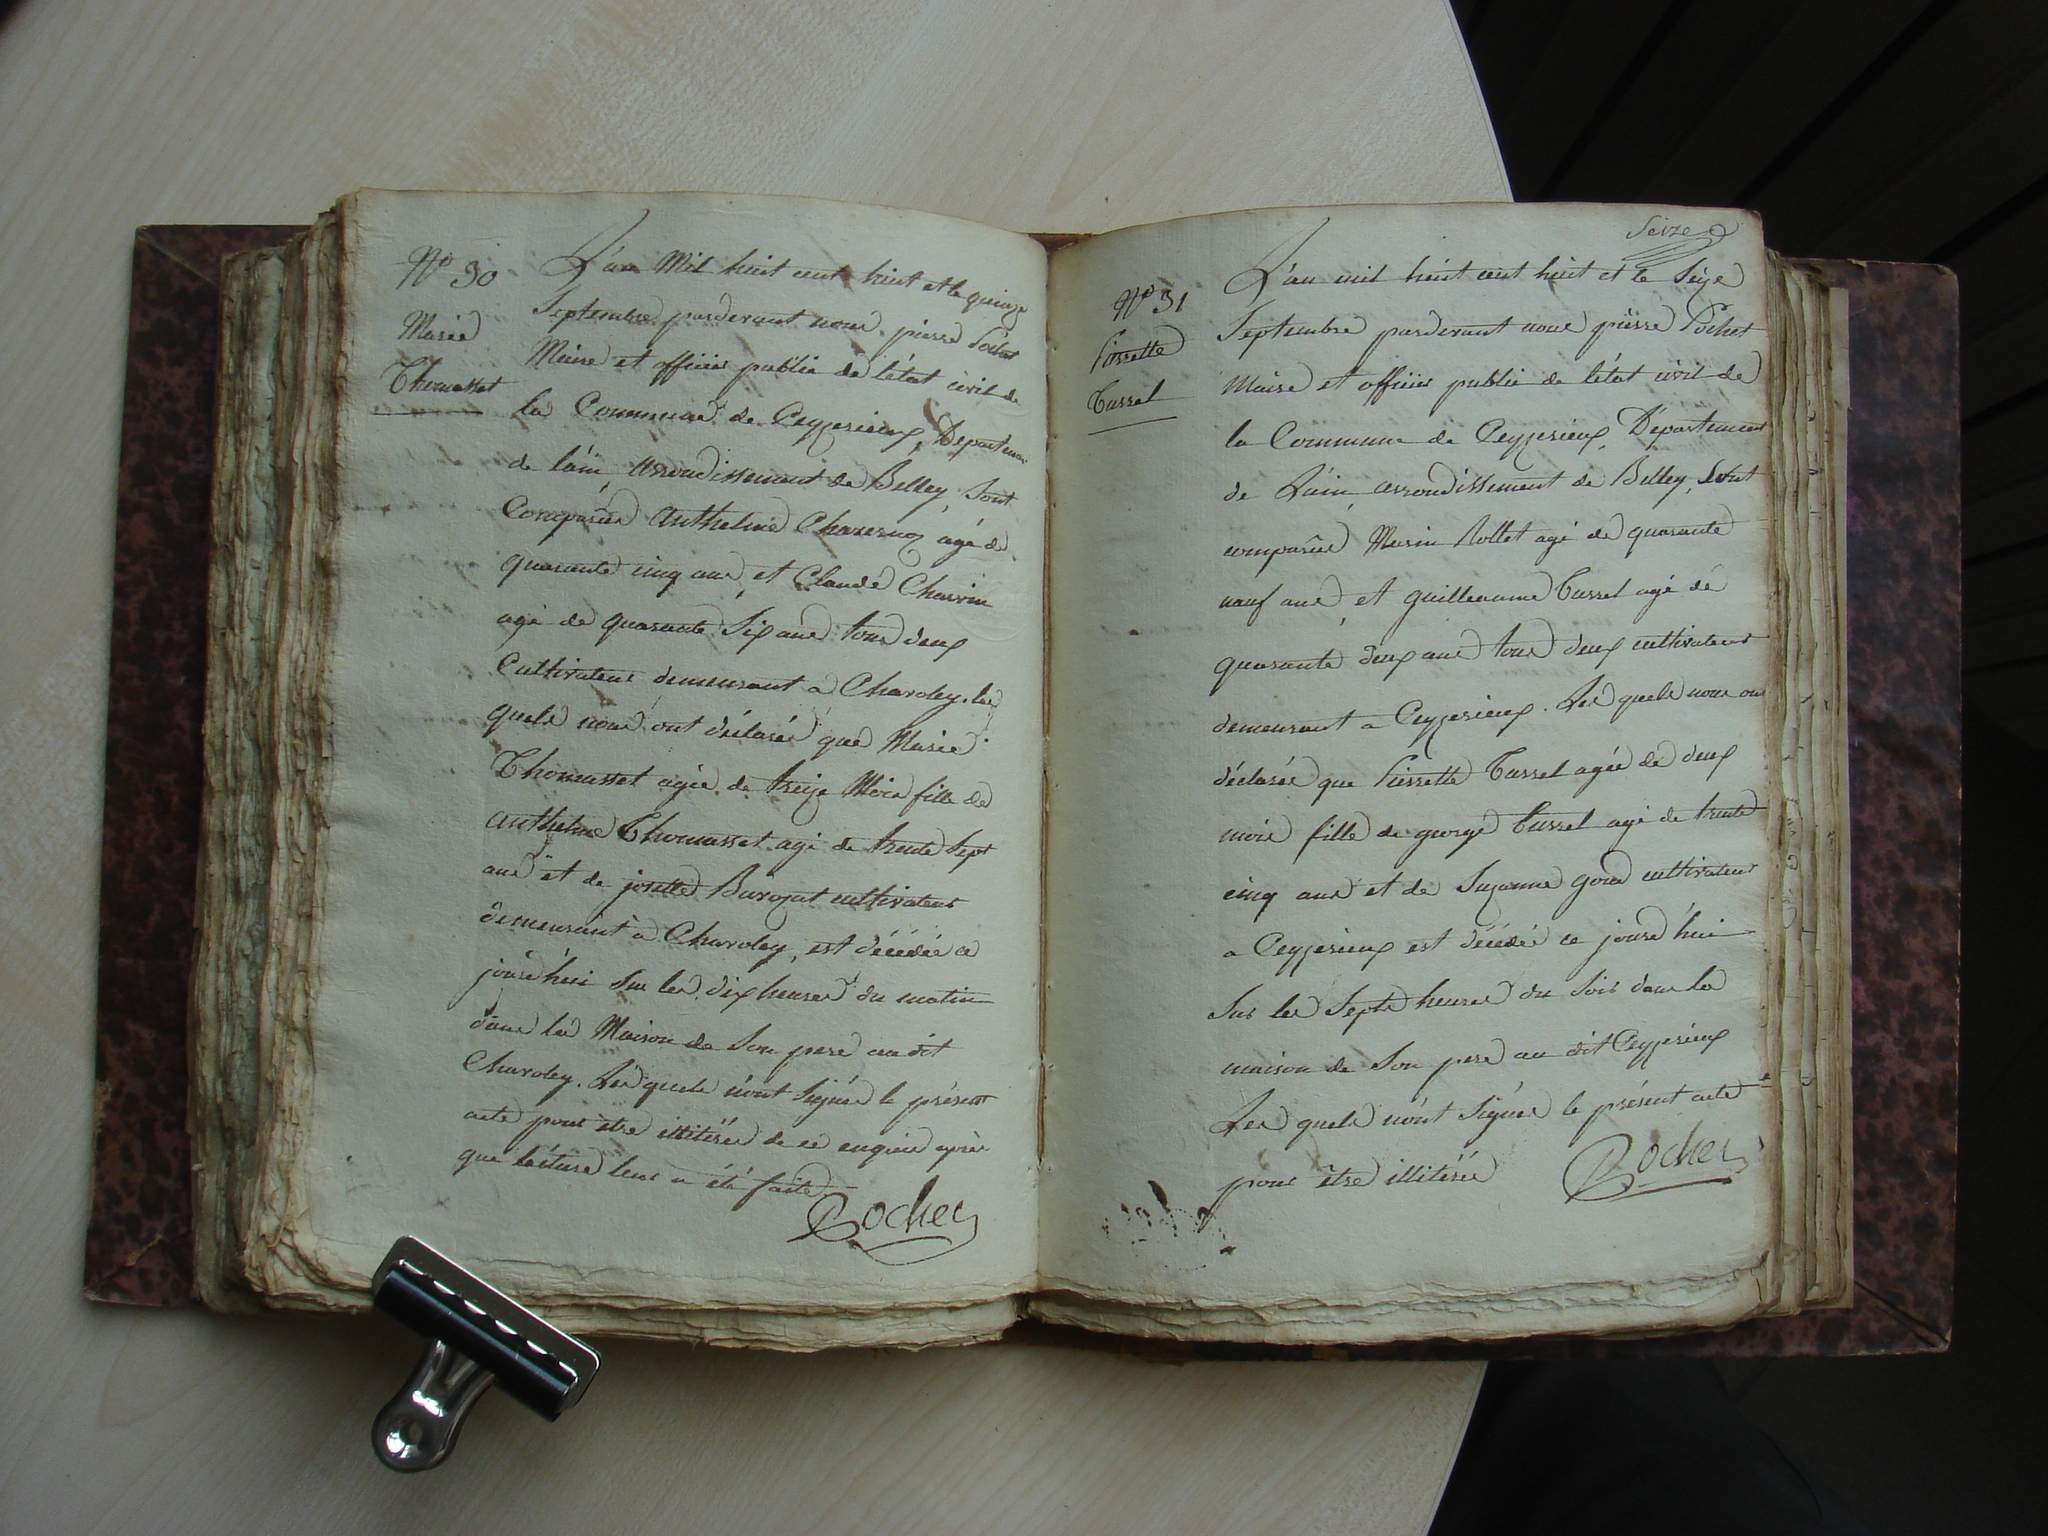 N° 30
Marie
Thomasset
L'an Mil huit cent huit et le quinze
Septembre pardevant nous pierre Pochet
Maire et officier public de l'état civil de
la Commune de Ceyzerieux, Departement
de l'ain, arrondissement de Belley, Sont
Comparus Anthelme Charernoz agé de
quarante cinq ans, et Claude Charvin
agé de quarante Six ans tous deux
Cultivateurs demeurant a Charoley. les
quels nous ont déclarés que Marie
Thomasset agée de treize Mois fille de
Anthelme Thomasset agé de trente Sept
ans et de josette Barozat cultivateurs
demeurant à Charoley, est décédée ce
jourd'hui Sur les dix heures du matin
dans la Maison de Son pere au dit
Charoley. Les quels n'ont Signés le présent
acte pour être illitérés de ce enquis après
que lécture leur a été faite.
Pochet
Seize
N° 31
Pierrette
Tussel
L'an mil huit cent huit et le Seize
Septembre pardevant nous pierre Pochet
Maire et officier public de l'état civil de
la Commune de Ceyzerieux, Département
de L'ain arrondissement de Belley, Sont
comparus Marin Rollet agé de quarante
neuf ans, et guilleaume Tussel agé de
quarante deux ans tous deux cultivateurs
demeurant a Ceyzerieux. Les quels nous ont
déclarés que Pierrette Tussel agée de deux
mois fille de george Tussel agé de trente
cinq ans et de Suzanne goud cultivateurs
a Ceyzerieux est décédée ce jourd'hui
Sur les Septs heures du Soir dans la
maison de Son pere au dit Ceyzerieux
Les quels n'ont Signés le présent acte
pour être illitérés
Pochet